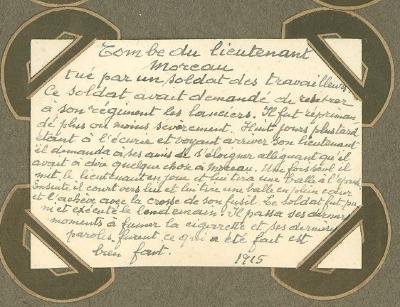 Tombe du lieutenant
Moreau
tué par un soldat des travailleurs
Ce soldat avait demandé de rentrer
à son régiment les lanciers. Il fut répriman
dé plus ou moins sévèrement. Huit jours plus tard
étant à l'écurie et voyant arriver son lieutenant
il demanda à ses amis de s'éloigner alléguant qu'il
avait à dire quelque chose à Moreau. Une fois seul il
mit le lieutenant en joue et lui tira une balle à
Ensuite il court vers lui et lui tire une balle en plein cœur
et l'achève avec la crosse de son fusil. Le soldat fut pu
ni et exécuté le lendemain. Il passa ses derniers
moments à fumer la cigarette et ses dernières
paroles furent ce qui a été fait est
bien fait. 1915